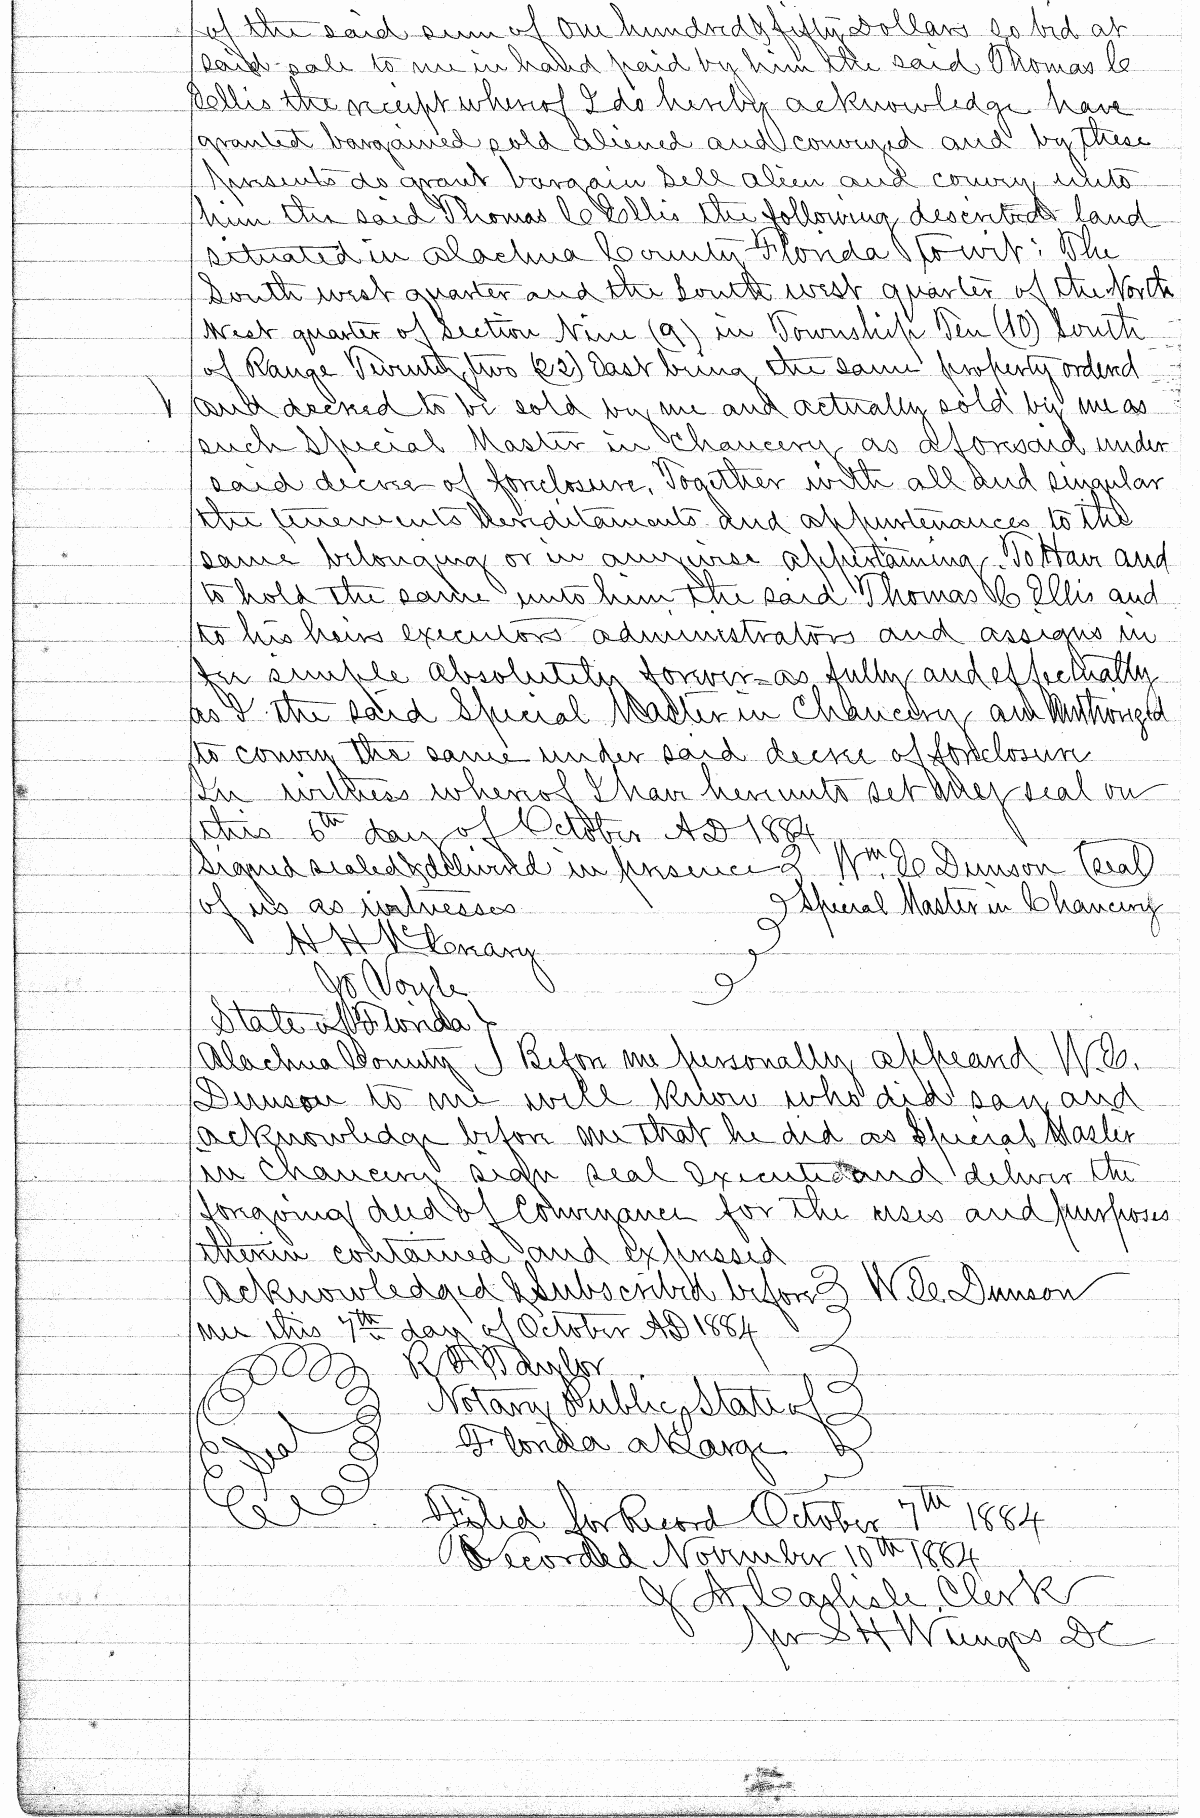 of the said sum of One hundred & fifty Dollars so bid at
said sale to me in hand paid by him the said Thomas C
Ellis the receipt whereof I do hereby acknowledge have
granted bargained sold aliened and conveyed and by these
presents do grant bargain sell alien and convey unto
him the said Thomas C Ellis the following described land
situated in Alachua County Florida to wit: The
South west quarter and the South west quarter of the North
West quarter of Section Nine (9) in Township Ten (10) South
of Range Twenty two (22) East being the same property ordered
and decreed to be sold by me and actually sold by me as
such Special Master in Chancery as aforesaid under
said decree of foreclosure. Together with all and singular
the tenements hereditaments and appurtenances to the
same belonging or in anywise appertaining. To Have and
to hold the same unto him the said Thomas C Ellis and
to his heirs executors administrators and assigns in
fee simple absolutely forever - as fully and effectually
as I the said Special Master in Chancery am Authorized
to convey the same under said decree of foreclosure
In witness whereof I have hereunto set my seal on
this 6th day of October AD 1884
Signed sealed & delivered in presence Wm. C Dunson (Seal)
of us as witnesses Special Master in Chancery
H H McCreary
Jo Voyle
State of Florida
Alachua County Before me personally appeared W. C.
Dunson to me well know who did say and
acknowledge before me that he did as Special Master
in Chancery sign seal Execute and deliver the
forgoing deed of Conveyance for the uses and purposes
therein contained and expressed
Acknowledged & Subscribed before W. C. Dunson
me this 7th day of October AD 1884
R H Taylor
Notary Public State of
Seal Florida at Large
Filed for Record October 7th 1884
Recorded November 10th 1884
J A Carlisle Clerk
per S H Wienges DC